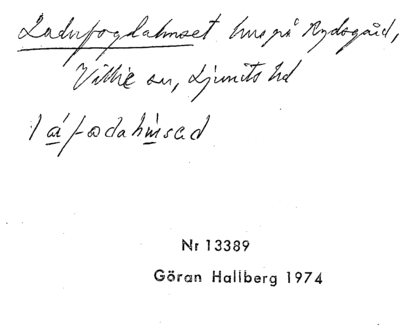 Ladufogdahuset hus på Rydsgård,
Villie sn, Ljunits hd
Nr 13389
Göran Hallberg 1974